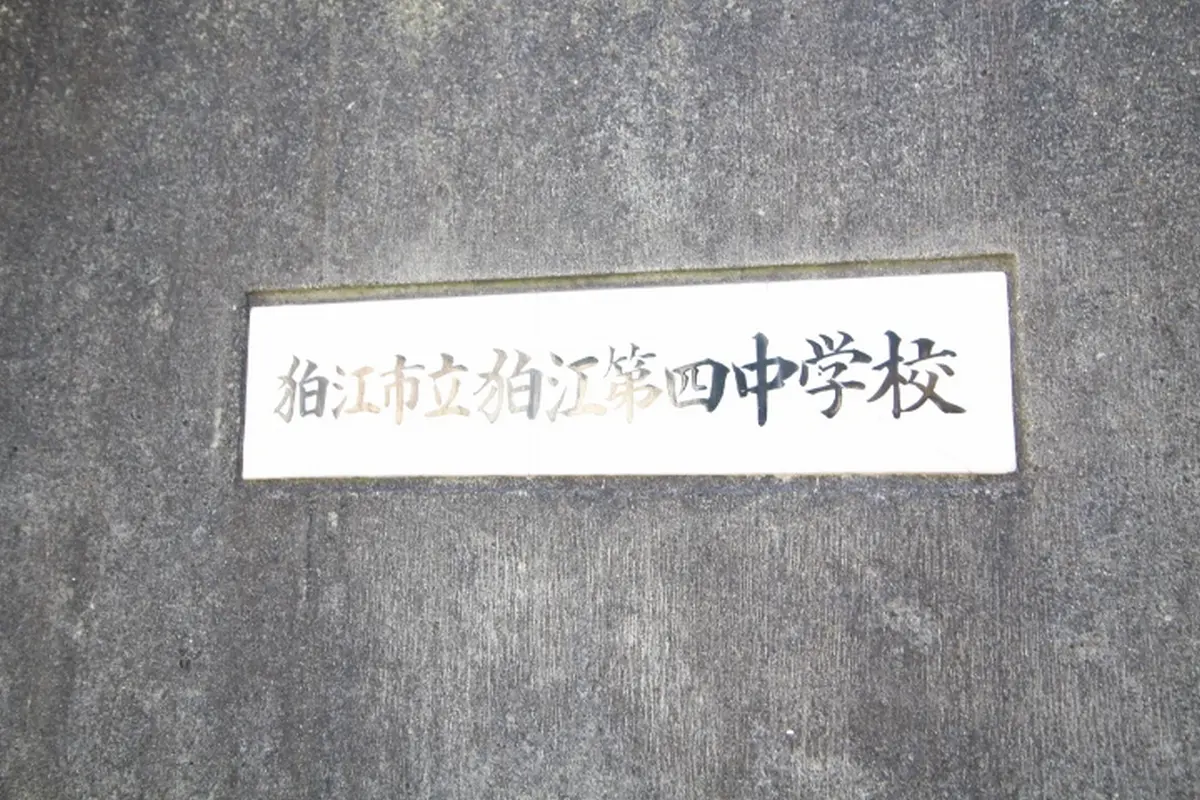 狛江市立狛江第四中学校